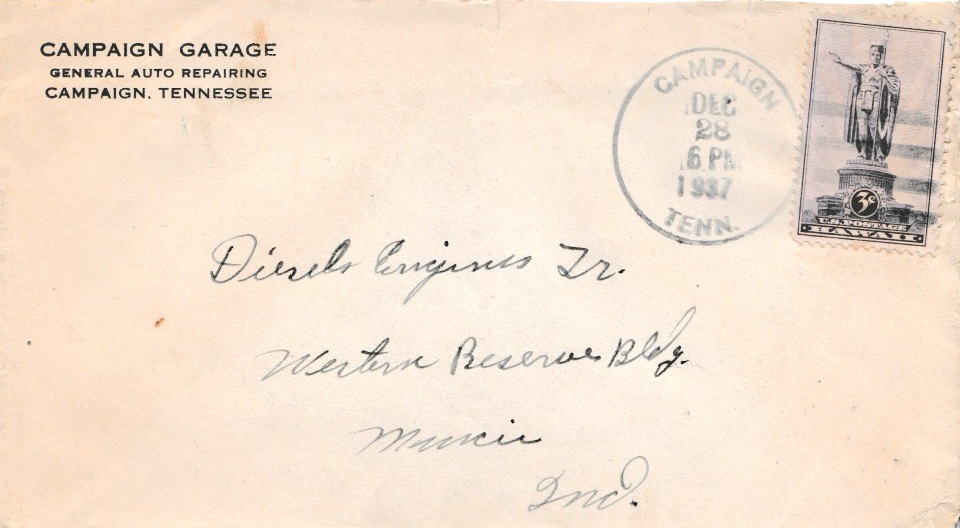 CAMPAIGN GARAGE
GENERAL AUTO REPAIRING
CAMPAIGN, TENNESSEE
CAMPAIGN
DEC
28
6 PM
1937
TENN.
3¢
U.S. POSTAGE
HAWAII
Diesels Engines Tr.
Western Reserve Bldg.
Muncie
Ind.